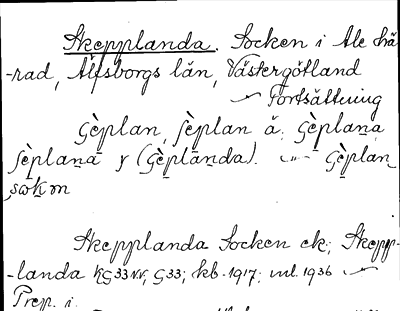 Skepplanda. Socken i Ale hä-
-rad, Älfsborgs län, Västergötland
Fortsättning
Sèplan, sèplan ä. Sèplana
sèplana y (Sèplanda). Sèplan
sωkm
Skepplanda Socken ek; Skepp-
-landa KG33 v.v, G33; kb. 1917; inl. 1936
Prep. i.